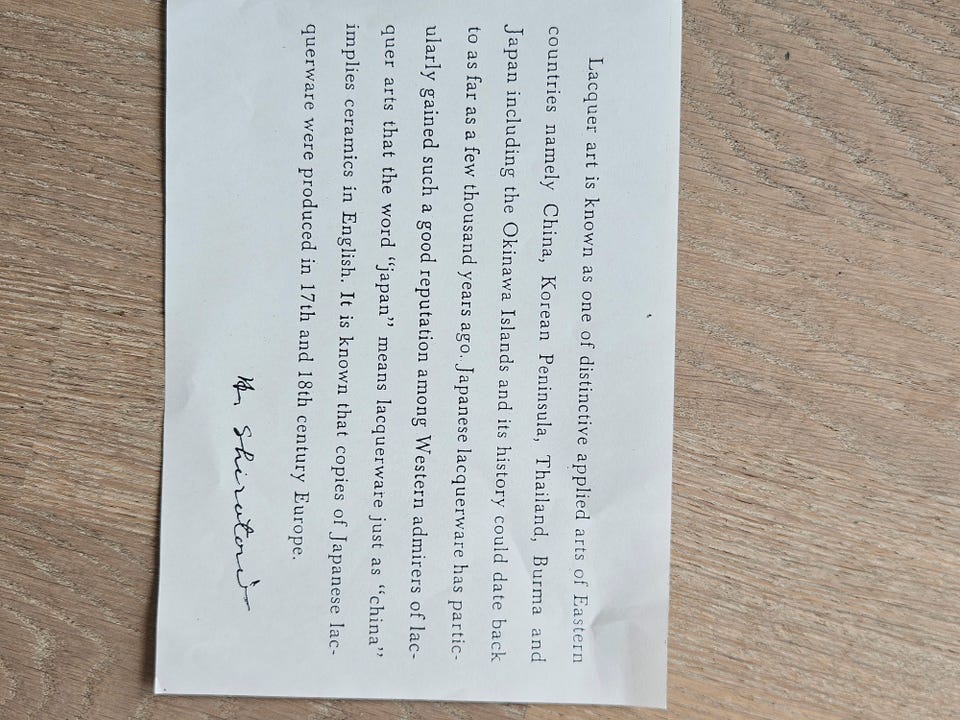 Lacquer art is known as one of distinctive applied arts of Eastern
countries namely China, Korean Peninsula, Thailand, Burma and
Japan including the Okinawa Islands and its history could date back
to as far as a few thousand years ago. Japanese lacquerware has partic-
ularly gained such a good reputation among Western admirers of lac-
quer arts that the word “japan” means lacquerware just as “china”
implies ceramics in English. It is known that copies of Japanese lac-
querware were produced in 17th and 18th century Europe.
Shiratori